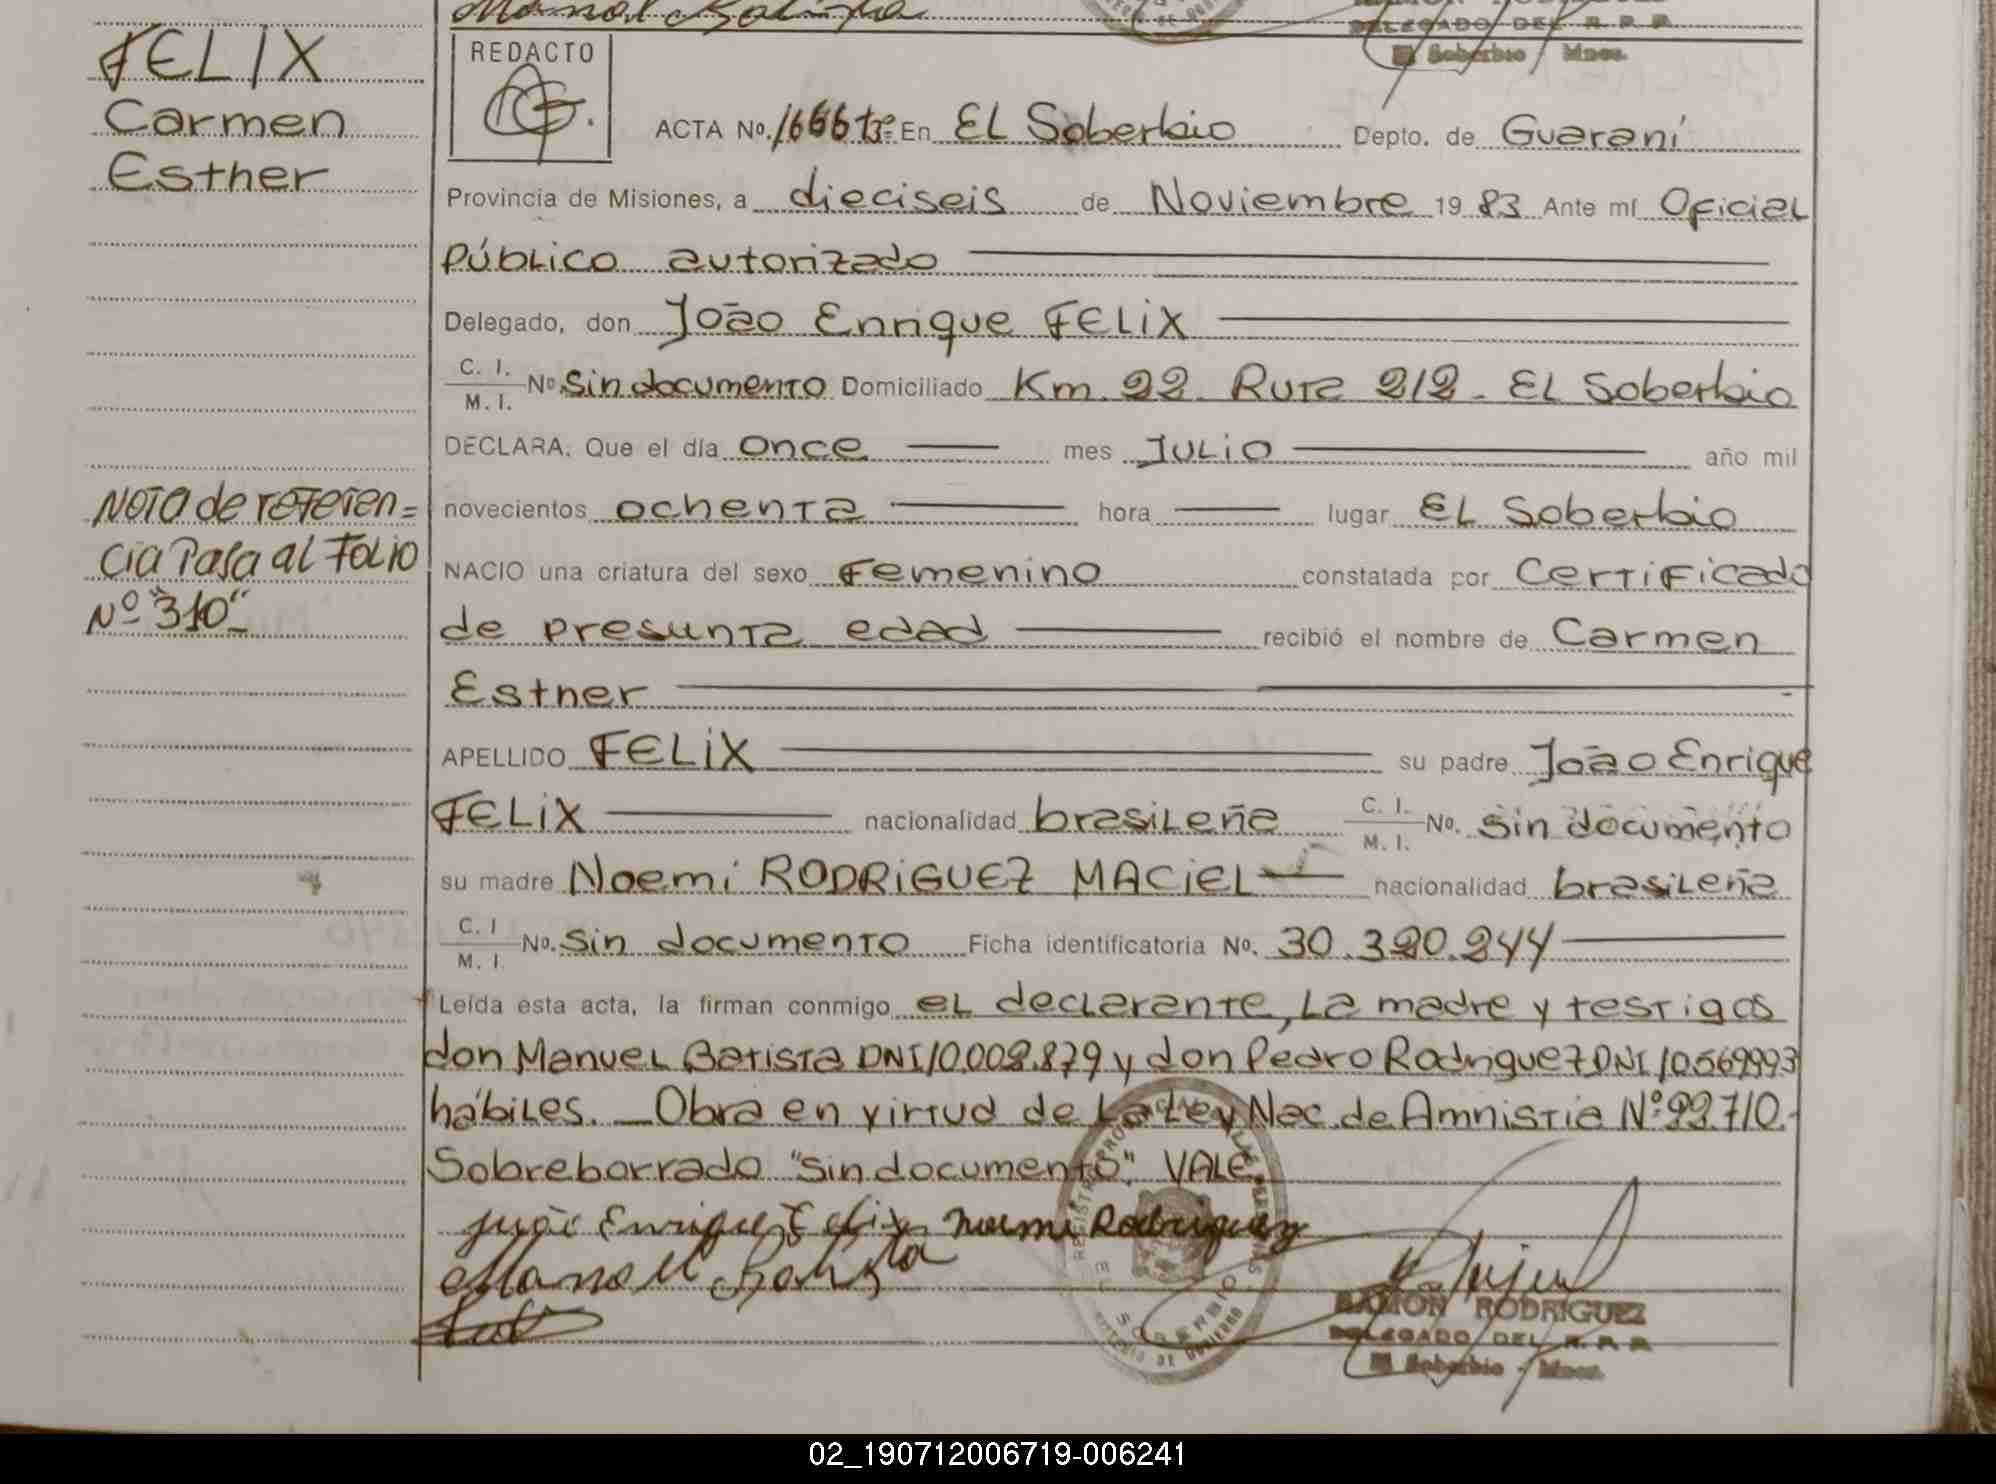 FELIX
Carmen
Esther
Nota de referen=
cia Pasa al Folio
Nº "310"
DELEGADO DEL R. P. P.
El Soberbio Mnes.
REDACTO
ACTA Nº. 1666 tº En EL Soberbio Depto. de Guaraní
Provincia de Misiones, a dieciseis de Noviembre 19 83 Ante mí Oficial
Público autorizado
Delegado, don João Enrique FELIX
C. I. / M. I. Nº Sin documento Domiciliado Km. 22 Ruta 212 - EL Soberbio
DECLARA: Que el día once mes Julio año mil
novecientos ochenta hora lugar EL Soberbio
NACIO una criatura del sexo Femenino constatada por Certificado
de presunta edad recibió el nombre de Carmen
Esther
APELLIDO FELIX su padre João Enrique
FELIX nacionalidad brasileña C. I. / M. I. Nº. Sin documento
su madre Noemí RODRIGUEZ MACIEL nacionalidad brasileña
C. I / M. I. Nº. Sin documento Ficha identificatoria Nº. 30.320.244
Leída esta acta, la firman conmigo el declarante, La madre y testigos
don Manuel Batista DNI 10.002.879 y don Pedro Rodriguez DNI 10.569993
hábiles. _ Obra en virtud de La Ley Nac. de Amnistia Nº 22.710.-
Sobreborrado "Sin documento". VALE
João Enrique Felix Noemi Rodriguez
Manoel Batista
RAMON RODRIGUEZ
DELEGADO DEL R. P. P.
El Soberbio - Mnes.
02_190712006719-006241